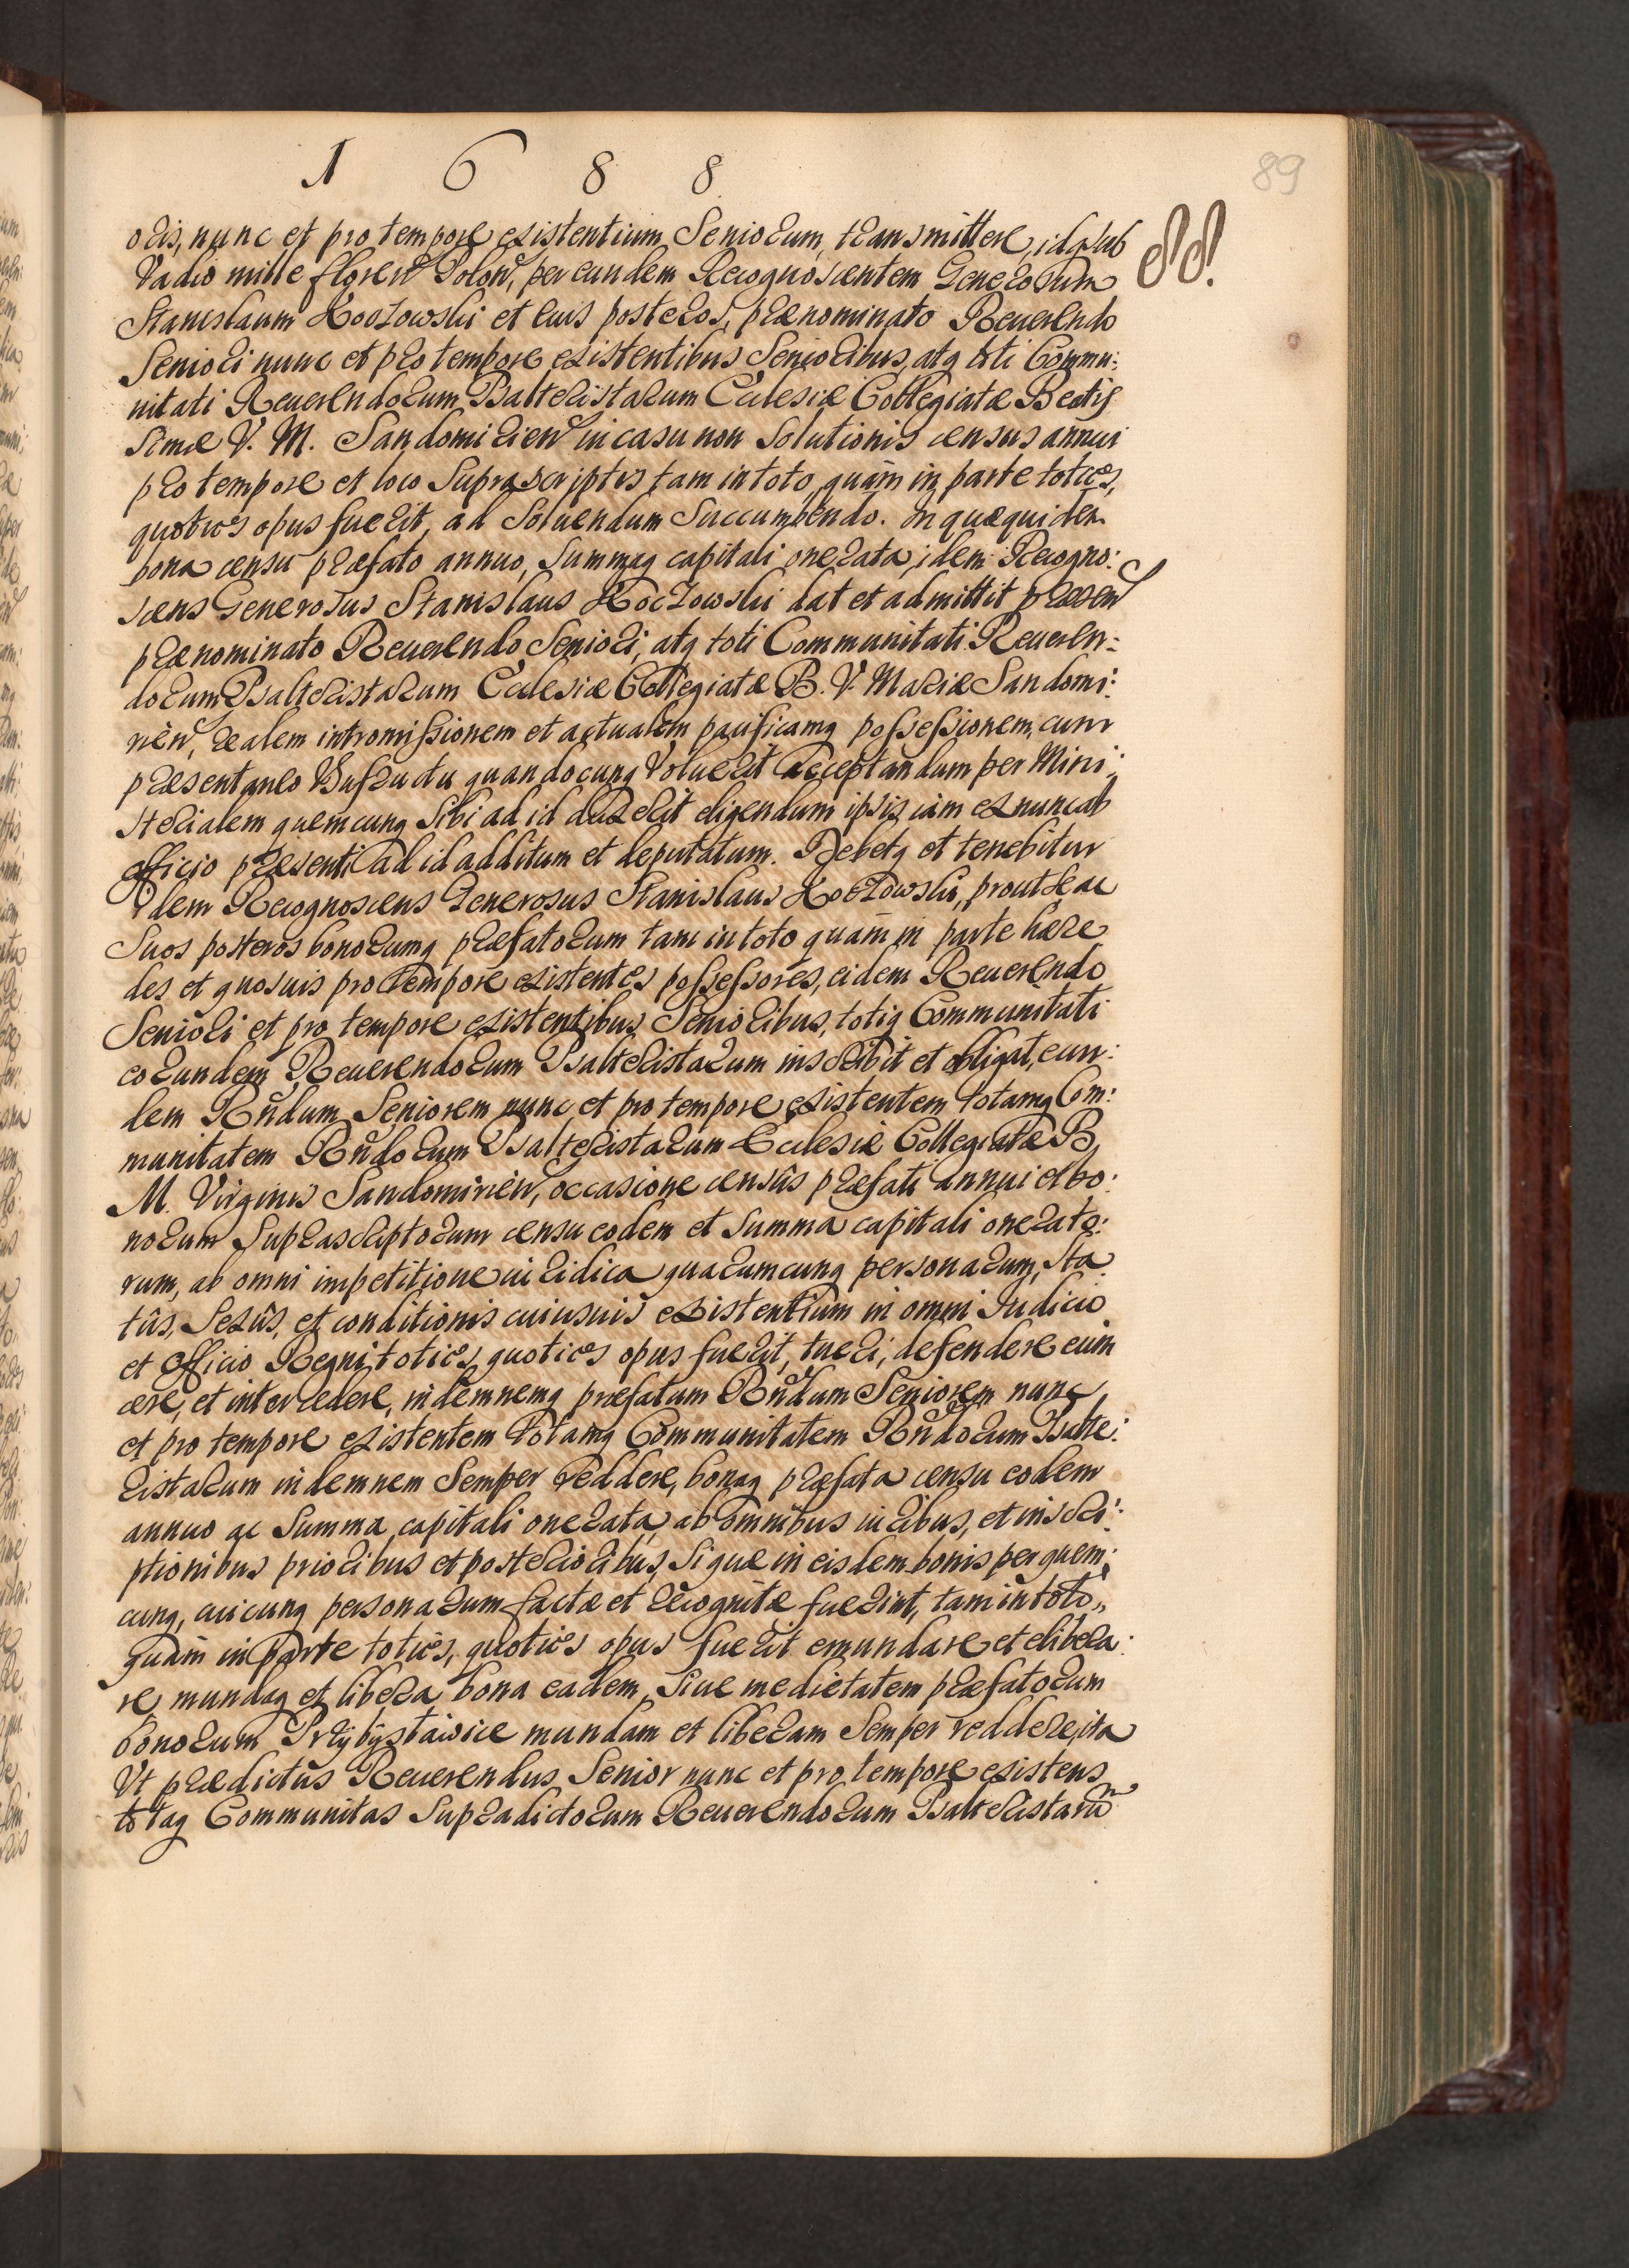 1 6 8 8
89
88.
oris, nunc et pro tempore existentium Seniorum, transmittere, idq sub
Vadio mille floren Polon, per eundem Recognoscentem Generosum
Stanislaum et eius posteros, prænominato Reuerendo
Seniori nunc et pro tempore existentibus Senioribus, atq toti Commu:
nitati Reuerendorum Psalteristarum Ecclesiæ Collegiatæ Beatis
simæ V. M. Sandomirien in casu non Solutionis census annui
pro tempore et loco Suprascriptis, tam in toto, quàm in parte toties,
quoties opus fuerit, ad Soluendum Succumbendo. In quæquidem
bona censu præfato annuo, Summaq capitali onerata, idem Recogno:
scens Generosus Stanislaus dat et admittit præsen
prænominato Reuerendo Seniori, atq toti Communitati Reueren:
dorum Psalteristarum Ecclesiæ Collegiatæ B. V. Mariæ Sandomi:
rien, realem intromissionem et actualem pacificamq possessionem, cum
præsentaneo Vsufructu quandocunq Voluerit acceptandum per Mini:
sterialem quemcunq Sibi ad id duxerit eligendum ipsis iam ex nunc ab
officio præsenti ad id additum et deputatum. Debetq et tenebitur
Idem Recognoscens Generosus Stanislaus, prout se ac
Suos posteros bonorumq præfatorum tam in toto quàm in parte hære
des et quosuis pro tempore existentes possessores, eidem Reuerendo
Seniori et pro tempore existentibus Senioribus, totiq Communitati
eorundem Reuerendorum Psalteristarum inscribit et obligat, eun:
dem Rndum Seniorem nunc et pro tempore existentem totamq Com:
munitatem Rndorum Psalteristarum Ecclesiæ Collegiatæ B.
M. Virginis Sandomirien, occasione censûs præfati annui et bo:
norum Suprascriptorum censu eodem et Summa capitali onerato:
rum, ab omni impetitione iuridica quarumcunq personarum, Sta
tûs, Sexûs, et conditionis cuiusuis existentium in omni Iudicio
et Officio Regni toties, quoties opus fuerit, tueri, defendere euin
cere, et intercedere, indemnemq præfatum Rndum Seniorem nunc
et pro tempore existentem totamq Communitatem Rndorum Psalte:
ristarum indemnem Semper reddere, bonaq præfata censu eodem
annuo ac Summa capitali onerata, ab omnibus iuribus, et inscri:
ptionibus prioribus et posterioribus, Si quæ in eisdem bonis per quem:
cunq, cuicunq personarum factæ et recognitæ fuerint, tam in toto,
quàm in parte toties, quoties opus fuerit emundare et elibera:
re, mundaq et libera bona eadem, Siue medietatem præfatorum
bonorum Przybysławice mundam et liberam Semper reddere, ita
Vt prædictus Reuerendus Senior nunc et pro tempore existens
totaq Communitas Supradictorum Reuerendorum Psalteristarum